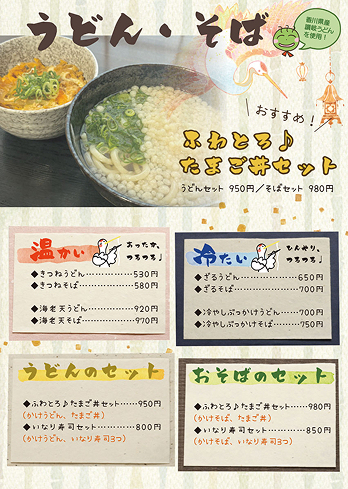 うどん・そば
香川県産
讃岐うどん
を使用!
おすすめ!
ふわとろ♪
たまご丼セット
うどんセット 950円/そばセット 980円
温かい
あったか、
つるつる♩
◆きつねうどん……………530円
◆きつねそば………………580円
◆海老天うどん……………920円
◆海老天そば………………970円
冷たい
ひんやり、
つるつる♩
◆ざるうどん………………650円
◆ざるそば…………………700円
◆冷やしぶっかけうどん……700円
◆冷やしぶっかけそば………750円
うどんのセット
◆ふわとろ♪たまご丼セット……950円
(かけうどん、たまご丼)
◆いなり寿司セット………800円
(かけうどん、いなり寿司3つ)
おそばのセット
◆ふわとろ♪たまご丼セット……980円
(かけそば、たまご丼)
◆いなり寿司セット………850円
(かけそば、いなり寿司3つ)